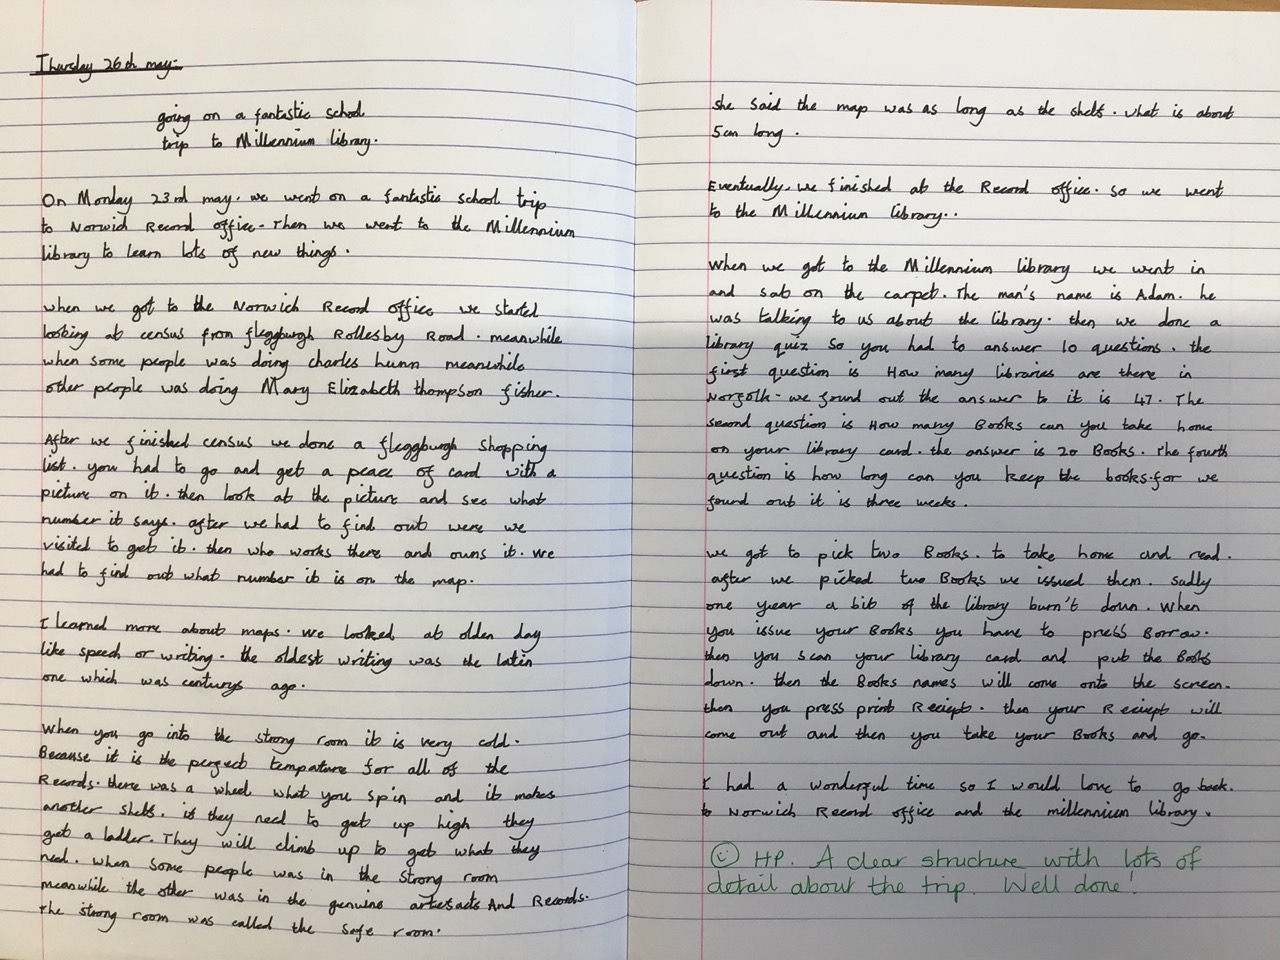 Thursday 26th may.
going on a fantastic school
trip to Millennium library.
On Monday 23rd may. we went on a fantastic school trip
to Norwich Record office. Then we went to the Millennium
library to learn lots of new things.
when we got to the Norwich Record office we started
looking at census from fleggburgh Rollesby Road. meanwhile
when some people was doing charles hunn meanwhile
other people was doing Mary Elizabeth thompson fisher.
After we finished census we done a fleggburgh shopping
list. you had to go and get a peace of card with a
picture on it. then look at the picture and see what
number it says. after we had to find out were we
visited to get it. then who works there and owns it. we
had to find out what number it is on the map.
I learned more about maps. we looked at olden day
like speech or writing. the oldest writing was the latin
one which was centurys ago.
When you go into the strong room it is very cold.
Because it is the perfect tempature for all of the
Records. there was a wheel what you spin and it makes
another shelf. if they need to get up high they
get a ladder. They will climb up to get what they
need. when some people was in the strong room
meanwhile the other was in the genuine artefacts And Records.
the strong room was called the safe room.
she said the map was as long as the shelf. what is about
5cm long.
Eventually. we finished at the Record office. so we went
to the Millennium library..
When we got to the Millennium library we went in
and sat on the carpet. The man's name is Adam. he
was talking to us about the library. then we done a
library quiz so you had to answer 10 questions. the
first question is How many libraries are there in
Norfolk. we found out the answer to it is 47. The
second question is How many Books can you take home
on your library card. the answer is 20 Books. The fourth
question is how long can you keep the books.for we
found out it is three weeks.
we got to pick two Books. to take home and read.
after we picked two Books we issued them. sadly
one year a bit of the library burn't down. When
you issue your Books you have to press Borrow.
then you scan your library card and put the Books
down. then the Books names will come onto the screen.
then you press print Reciept. then your Reciept will
come out and then you take your Books and go.
I had a wonderful time so I would love to go back.
to Norwich Record office and the millennium library.
HP. A clear structure with lots of
detail about the trip. Well done!